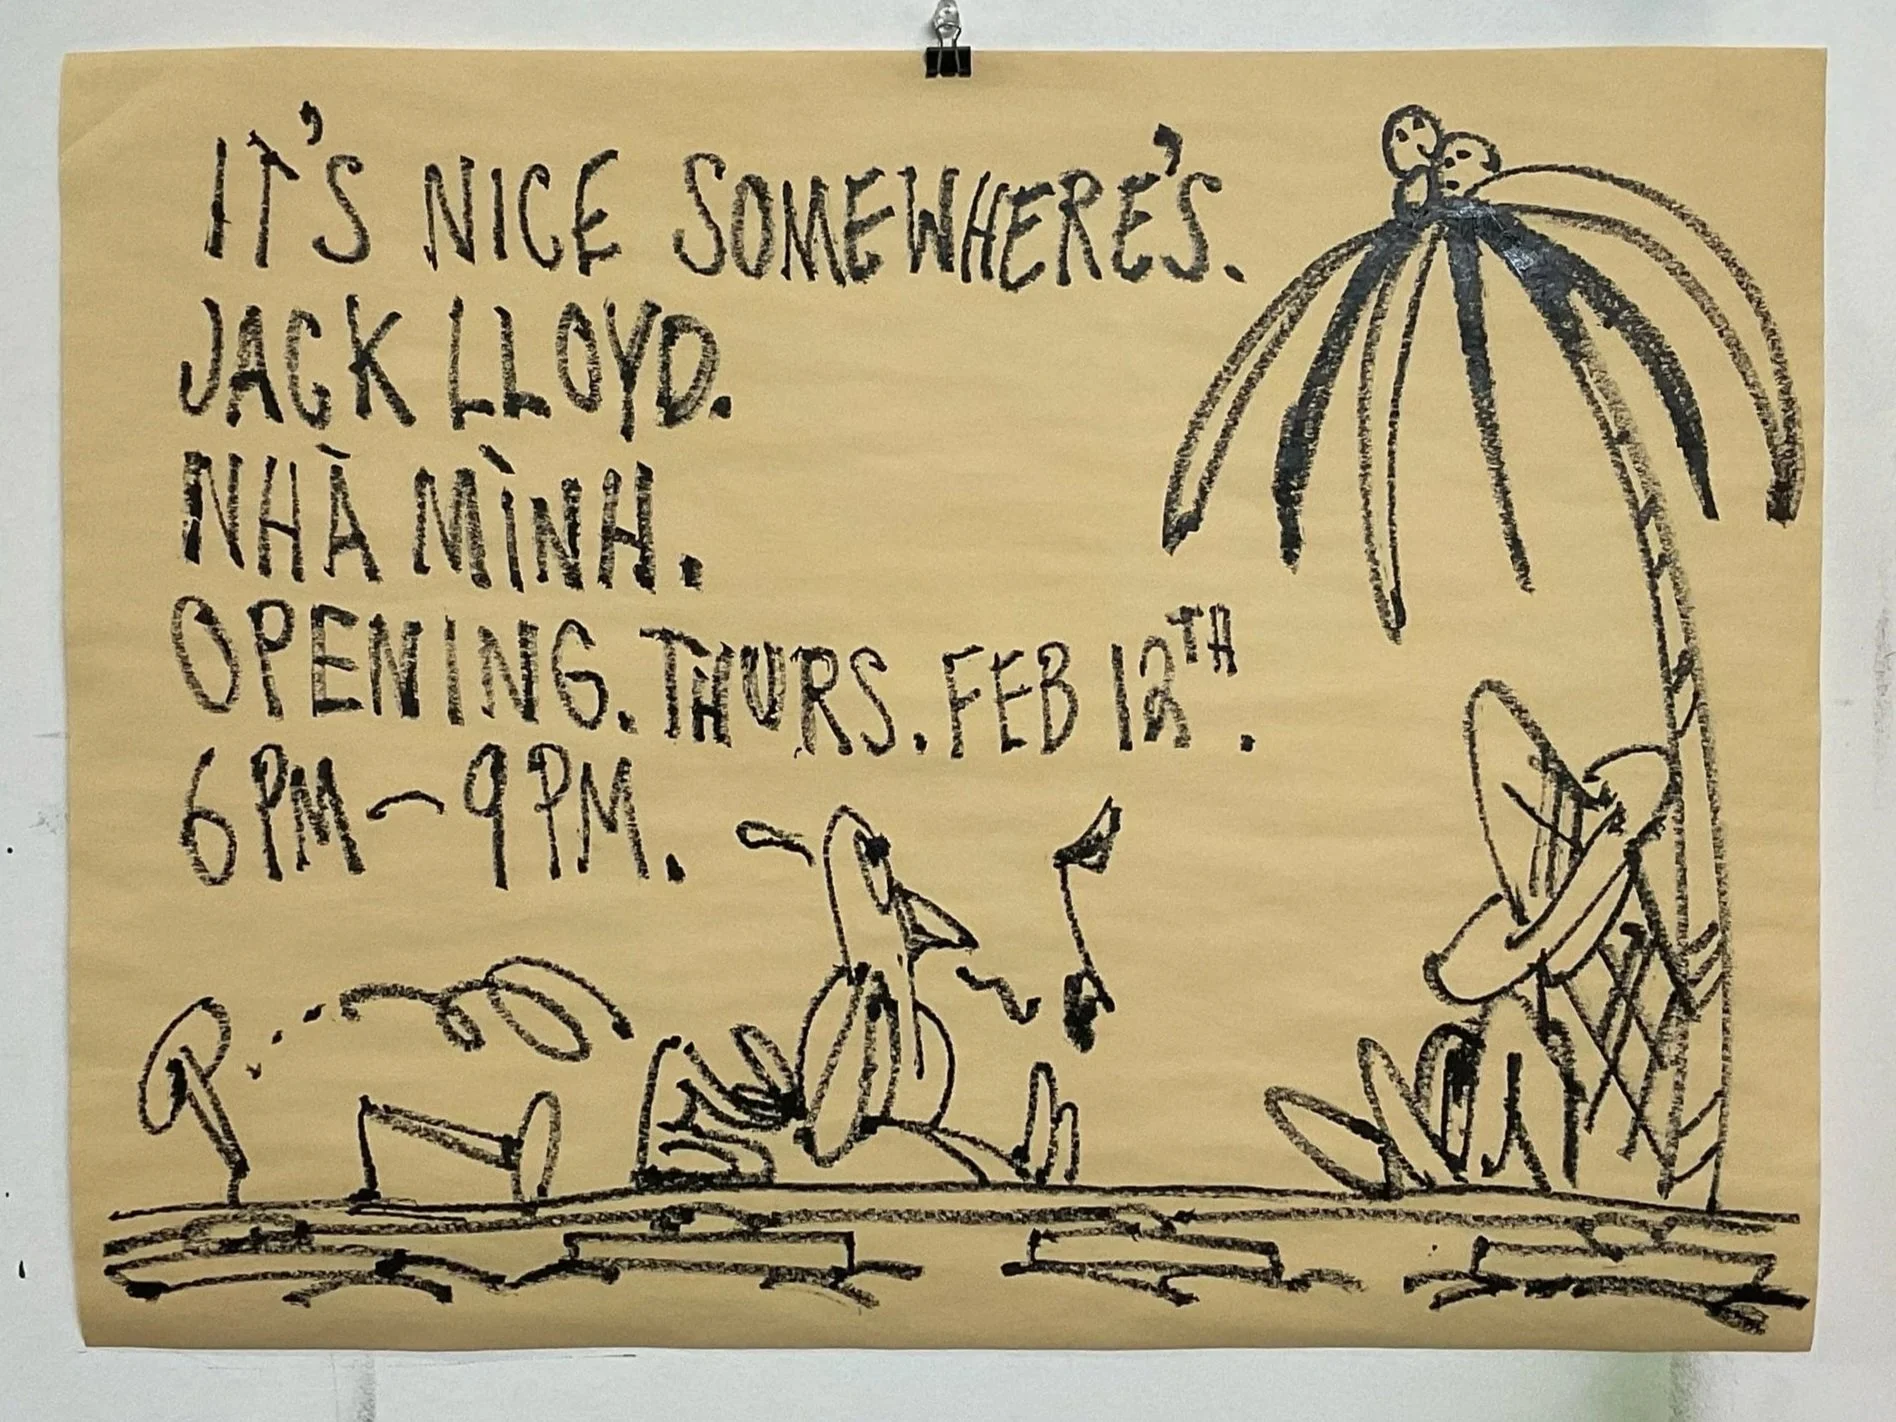 IT'S NICE SOMEWHERE'S.
JACK LLOYD.
NHÀ MÌNH.
OPENING. THURS. FEB 12TH.
6PM~9PM.